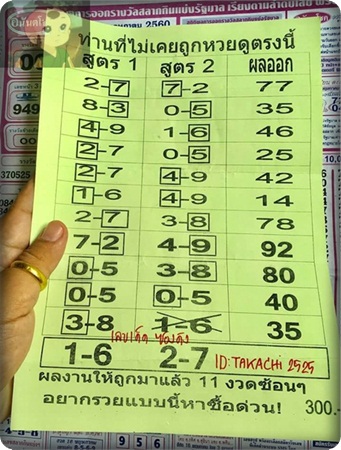 ท่านที่ไม่เคยถูกหวยดูตรงนี้
สูตร 1 สูตร 2 ผลออก
2-7 7-2 77
8-3 0-5 35
4-9 1-6 46
2-7 0-5 25
2-7 4-9 42
1-6 4-9 14
2-7 3-8 78
7-2 4-9 92
0-5 3-8 80
0-5 0-5 40
3-8 1-6 35
เลขเด็ด ซองดัง
1-6 2-7 ID:TAKACHI 2525
ผลงานให้ถูกมาแล้ว 11 งวดซ้อนๆ
อยากรวยแบบนี้หาซื้อด่วน! 300.-